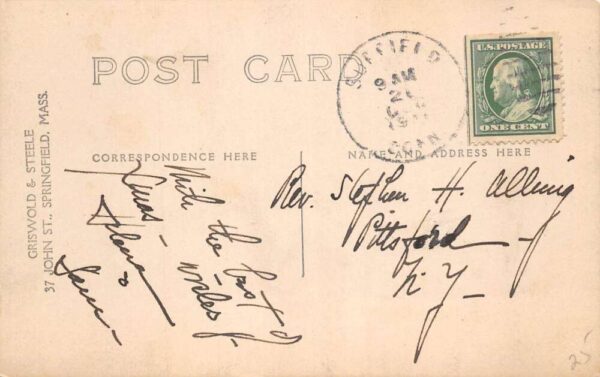 POST CARD
GRISWOLD & STEELE
37 JOHN ST., SPRINGFIELD, MASS.
CORRESPONDENCE HERE
NAME AND ADDRESS HERE
SUFFIELD
9 AM
CONN
U.S. POSTAGE
ONE CENT
With the best
wishes of
Xmas -
&
Rev. Stephen H. Alling
Pittsford
N.Y.
25